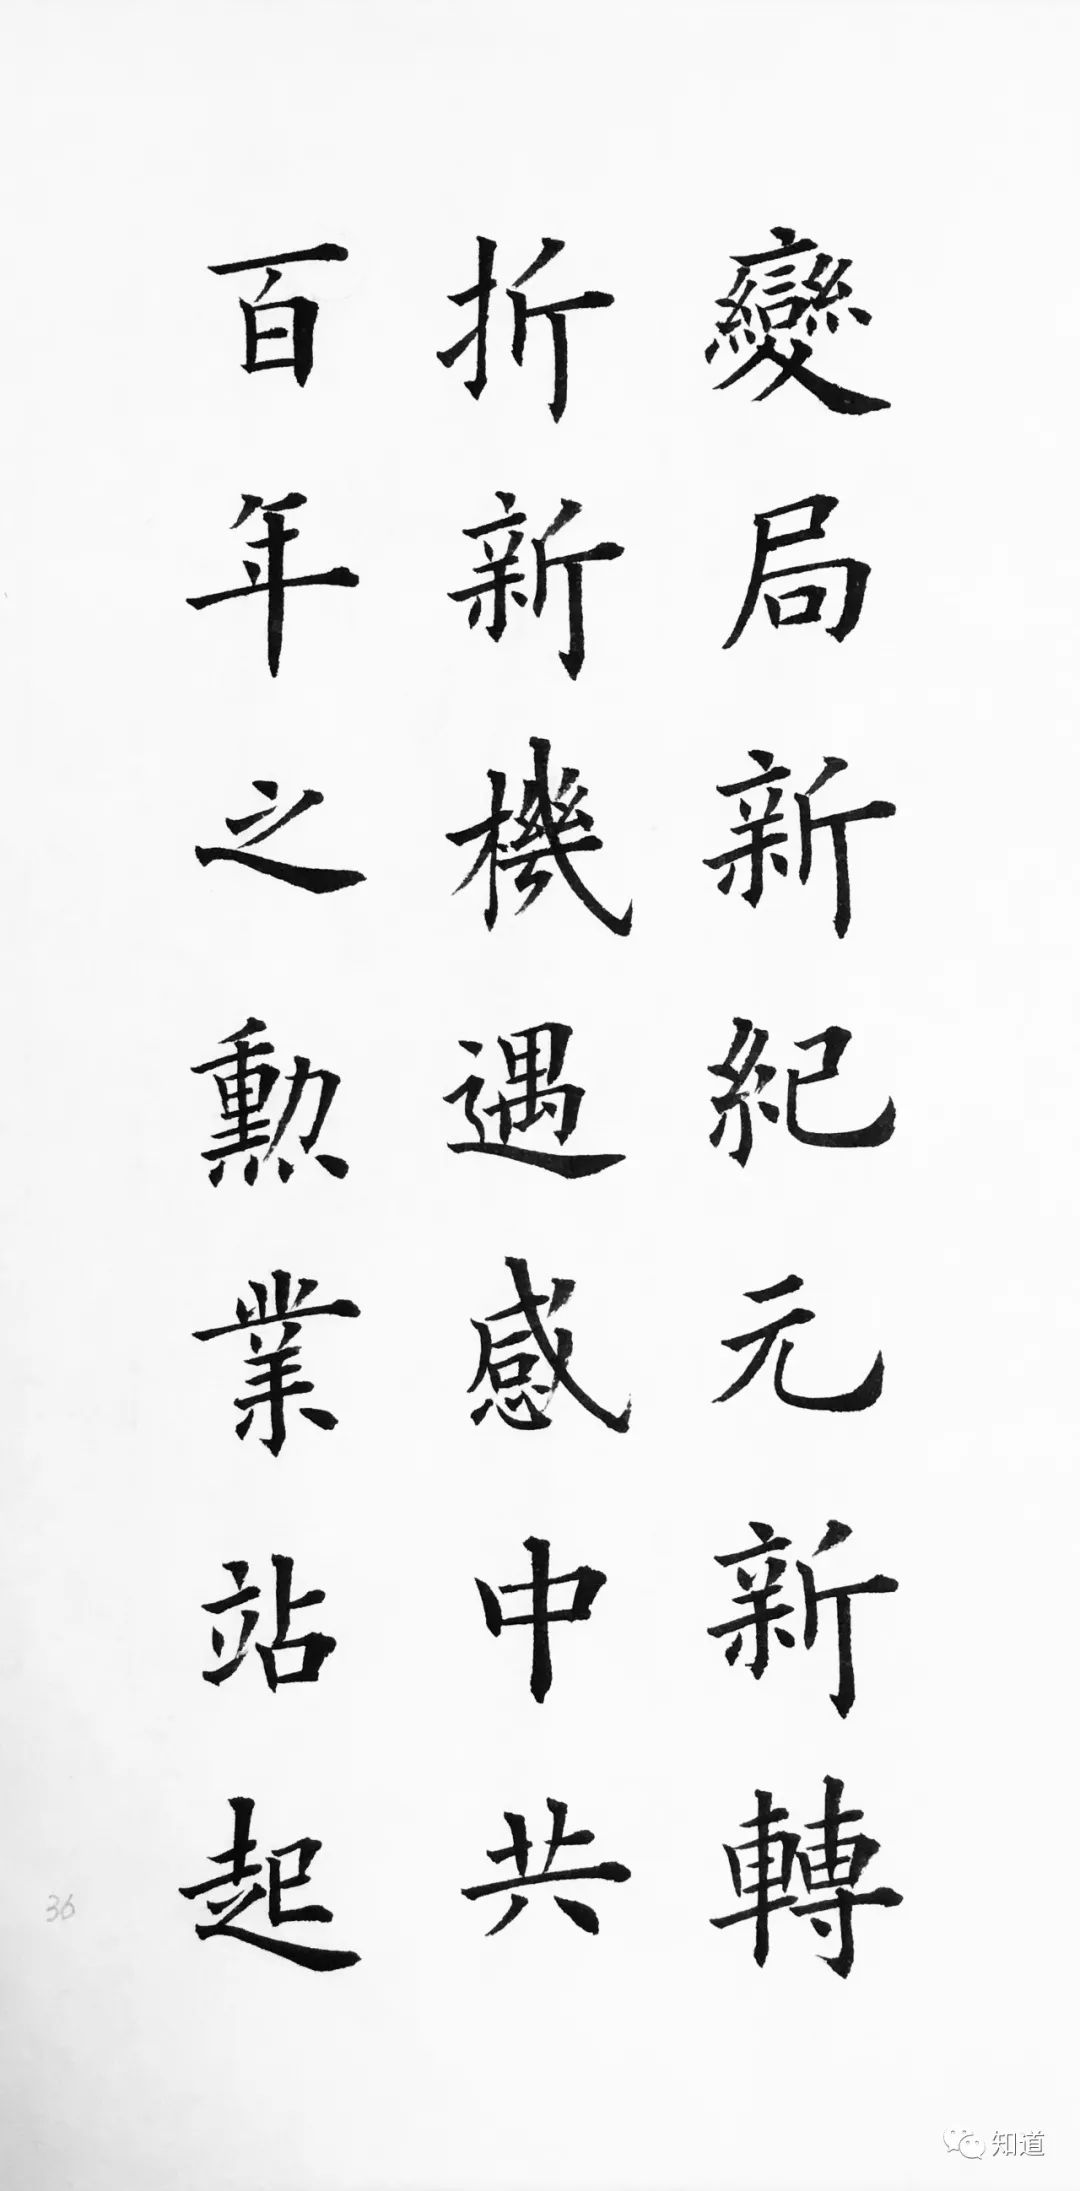 變局新紀元新轉
折新機遇感中共
百年之勳業站起
36
知道